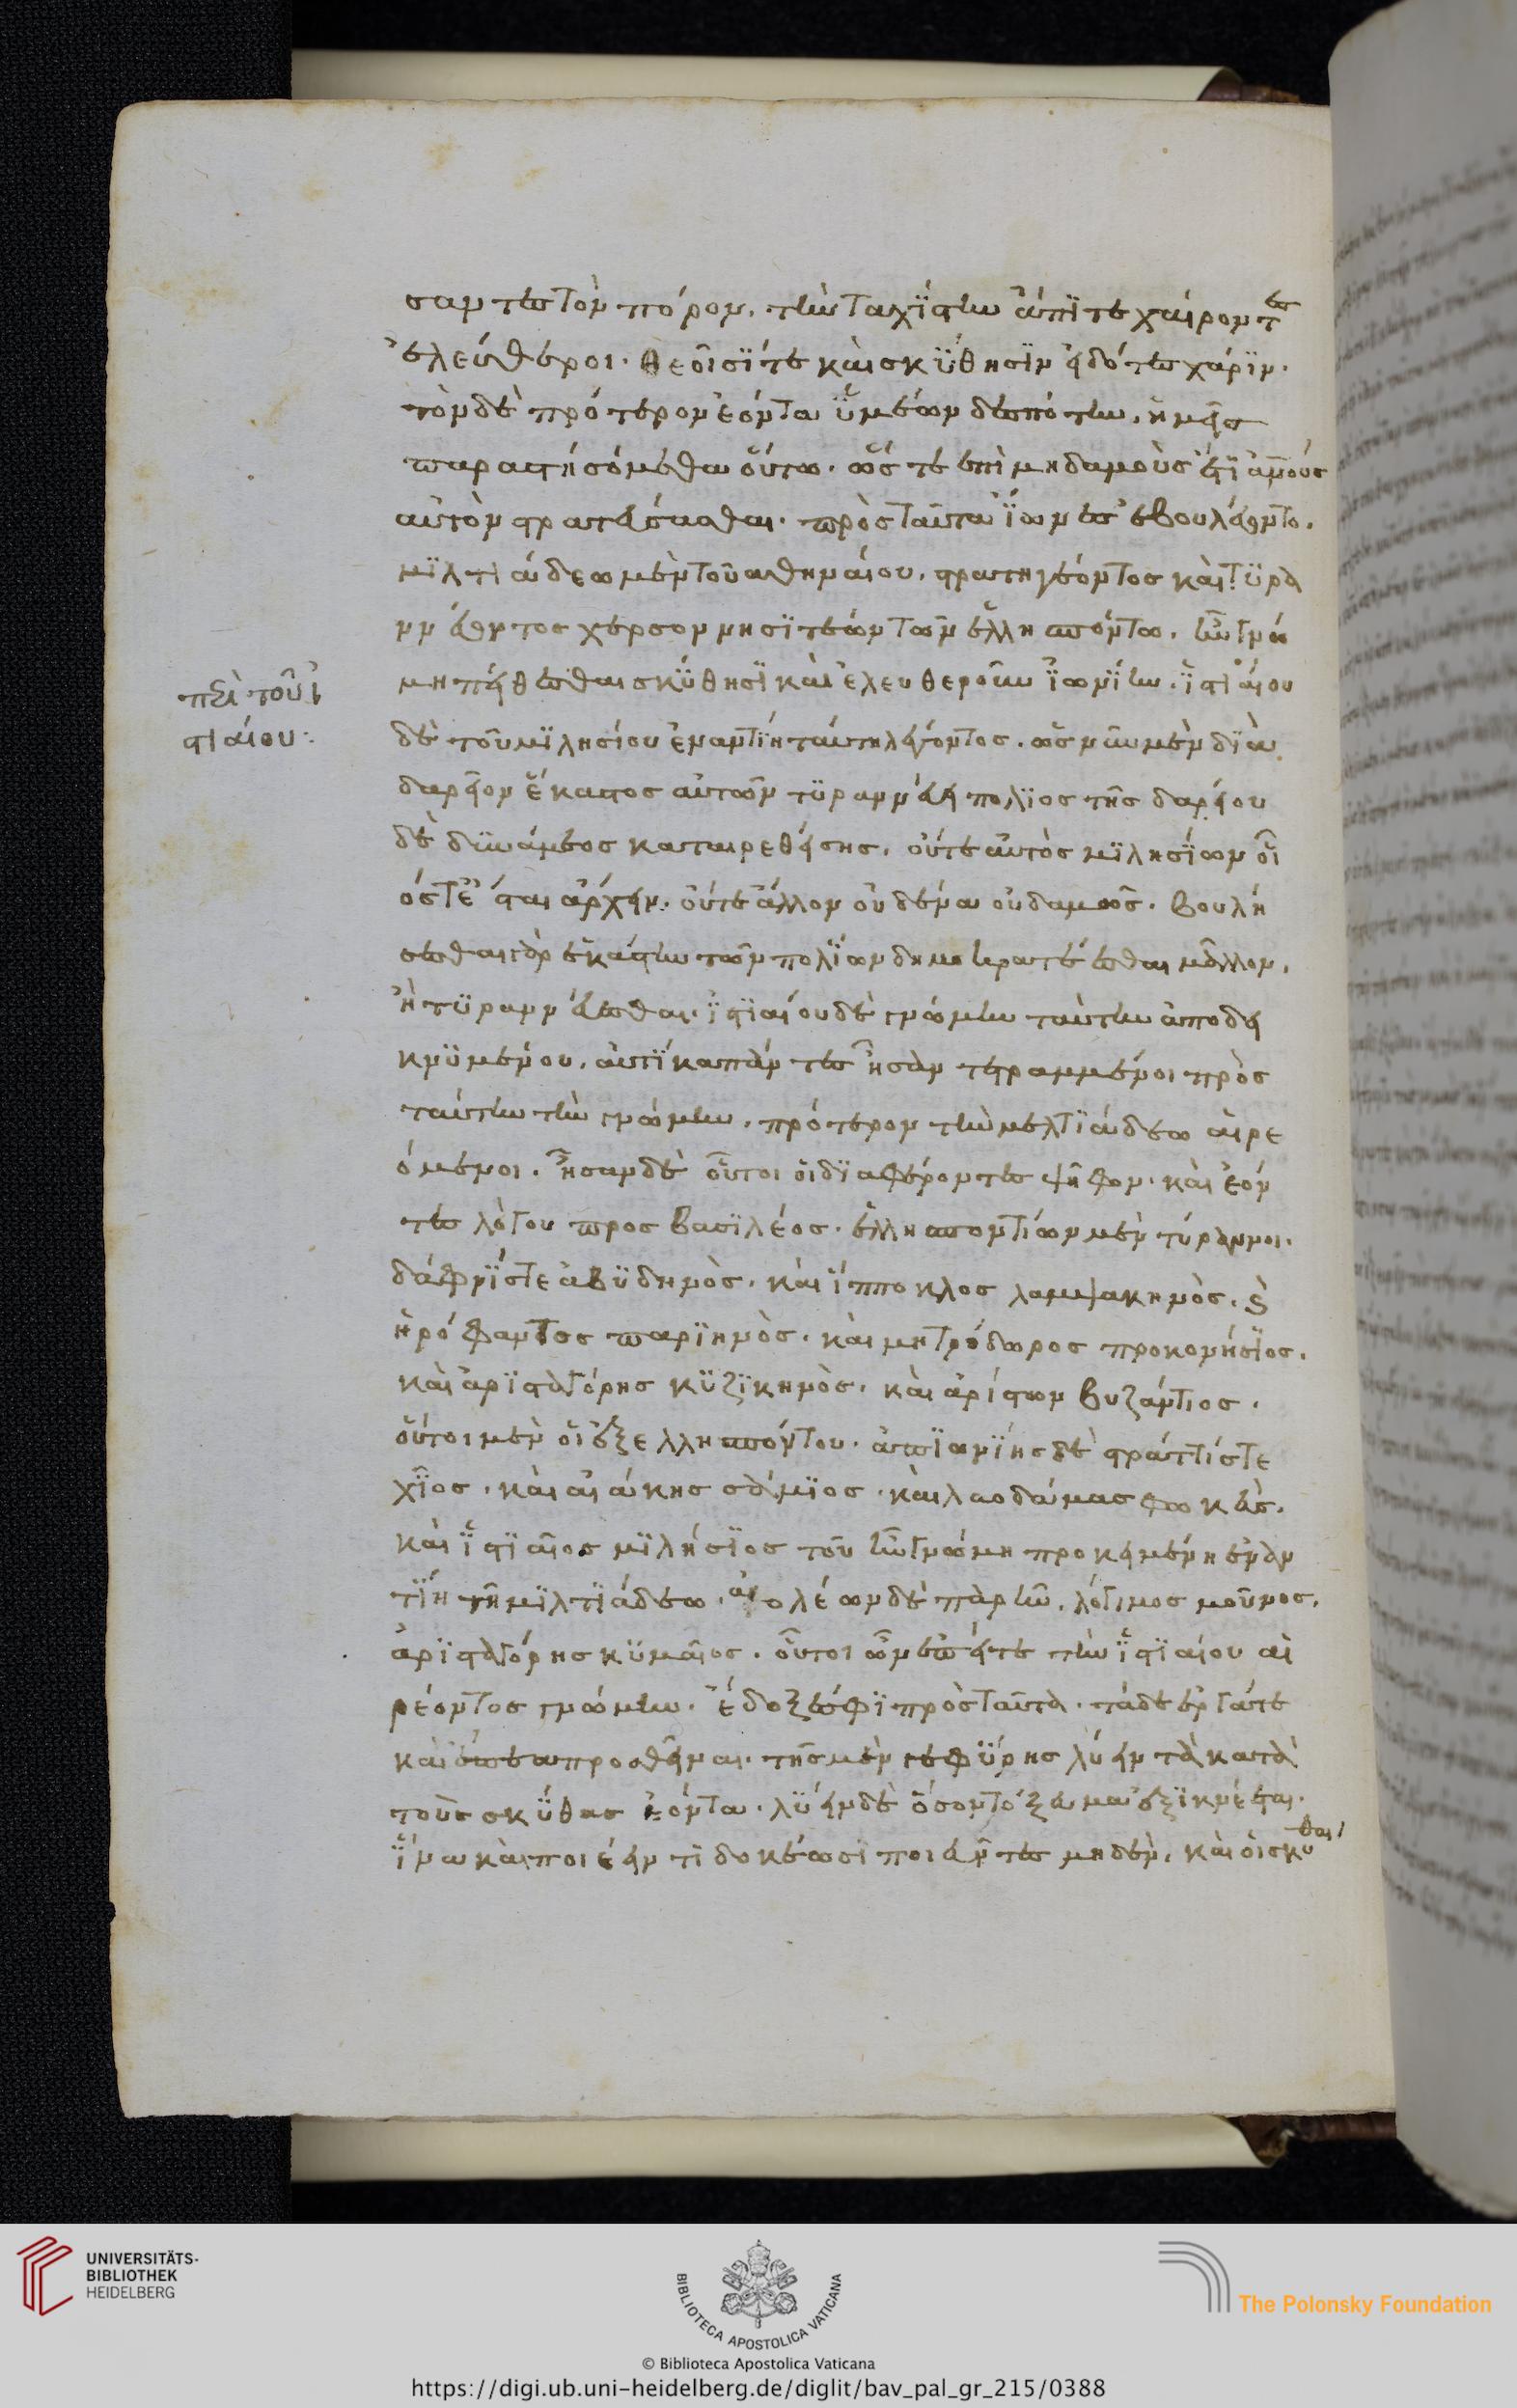 σαντες τὸν πόρον, τὴν ταχίστην ἄπιτε χαίροντες
ἐλεύθεροι. θεοῖσί τε καὶ σκύθῃσιν εἰδότες χάριν.
τὸν δὲ πρότερον ἐόντα ὑμέων δεσπότην, ἡμεῖς
παραστησόμεθα οὕτω. ὥς τε ἐπὶ μηδαμοὺς ἔτι ἀν̅ους
αὐτὸν στρατεύσασθαι. πρὸς ταῦτα ἴωνες ἐβουλεύοντο.
μϊλτιάδεω μὲν τοῦ ἀθηναίου, στρατηγέοντος καὶ τυρα
ννεύοντος χερσοννησϊτέων τῶν ἐλλησπόντω, ἦν γνώ
μη πείθεσθαι σκύθησϊ καὶ ἐλευθεροῦν ἰωνίην. ἱστιαίου
δὲ τοῦ μϊλησίου ἐναντίη ταύτη λέγοντος. ὡς νῦν μὲν διὰ
δαρεῖον ἕκαστος αὐτῶν τυραννεύει πολϊος τῆς δαρείου
δὲ δυνάμεος καταιρεθείσης, οὔτε αὐτὸς μϊλησίων οἷ
ός τε ἔσται ἀρχειν. οὔτε ἄλλον οὐδένα οὐδαμῶς. βουλή
σεσθαι γὰρ ἑκάστην τῶν πολίων δημοκρατέεσθαι μᾶλλον,
ἢ τυραννεύεσθαι. ἱστιαίου δὲ γνώμην ταύτην ἀποδει
κνυμένου, αὐτίκα πάντες ἦσαν τετραμμένοι πρὸς
ταύτην τὴν γνώμην, πρότερον τὴν μελτιάδεω αἱρε
όμενοι. ἦσαν δὲ οὗτοι οἱ διαφέροντες ψῆφον. καὶ ἐόν
τες λόγου προς βασιλέος. ἑλλησποντίων μὲν τύραννοι.
δάφνϊς τε ἀβυδηνὸς. καὶ ἵπποκλος λαμψακηνὸς. καὶ
ἡρόφαντος παριηνὸς. καὶ μητρόδωρος προκονήσϊος.
καὶ ἀρισταγόρης κυζικηνὸς. καὶ ἀρίστων βυζάντιος.
οὗτοι μὲν οἱ ἐξ ἑλλησπόντου. ἀπ' ἰωνίης δὲ στράττις τε
χῖος. καὶ αἰάκης σάμϊος. καὶ λαοδάμας φωκεύς.
καὶ ἱστιαῖος μϊλήσϊος τοῦ ἦν γνώμη προκειμένη ἐναν
τίη τῆ μϊλτιάδεω. αἰολέων δὲ παρῆν, λόγιμος μοῦνος,
ἀρισταγόρης κυμαῖος. οὗτοι ὦν ἐπείτε τὴν ἱστιαίου αἱ
ρέοντος γνώμην. ἔδοξέ σφι πρὸς ταῦτα. τάδε ἔργά τε
καὶ ἔπεα προσθεῖναι. τῆς μὲν γεφύρης λύειν τὰ κατὰ
τοὺς σκύθας ἐόντα. λύειν δὲ ὅσον τόξευμα ἐξϊκνέεται.
ἵνα καὶ ποιέειν τὶ δοκέωσϊ ποιεῦντες μηδέν, καὶ οἱ σκυθαι
πε̣ρὶ τοῦ ἱ
στιαίου:
UNIVERSITÄTS-
BIBLIOTHEK
HEIDELBERG
BIBLIOTECA APOSTOLICA VATICANA
The Polonsky Foundation
© Biblioteca Apostolica Vaticana
https://digi.ub.uni-heidelberg.de/diglit/bav_pal_gr_215/0388